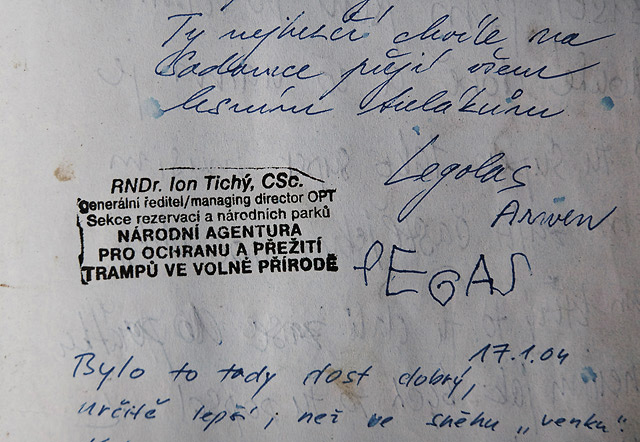 Ty nejhezčí chvíle na
Sadance přejí všem
lesním tulákům
Legolas
Arwen
PEGAS
RNDr. Ion Tichý, CSc.
Generální ředitel/managing director OPT
Sekce rezervací a národních parků
NÁRODNÍ AGENTURA
PRO OCHRANU A PŘEŽITÍ
TRAMPŮ VE VOLNÉ PŘÍRODĚ
17.1.04
Bylo to tady dost dobrý,
určitě lepší, než ve sněhu „venku".